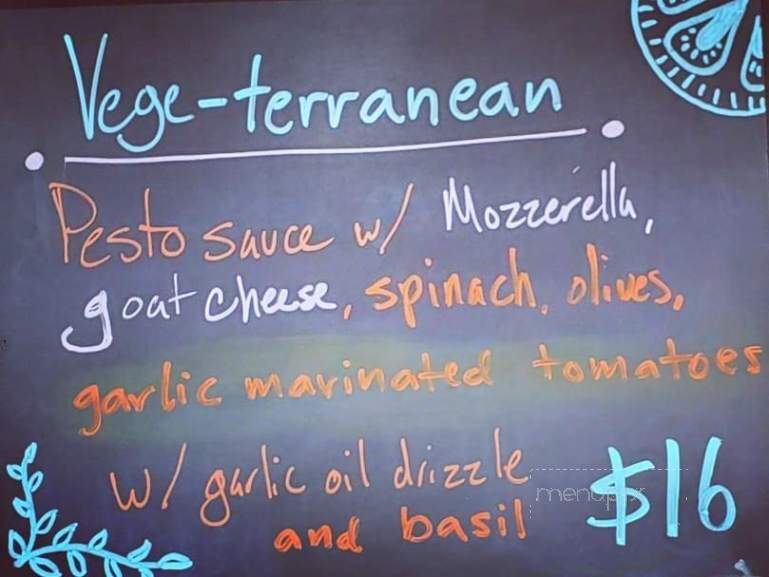 Vege-terranean
Pesto sauce w/ Mozzerella,
goat cheese, spinach, olives,
garlic marinated tomatoes
w/ garlic oil drizzle
and basil
$16